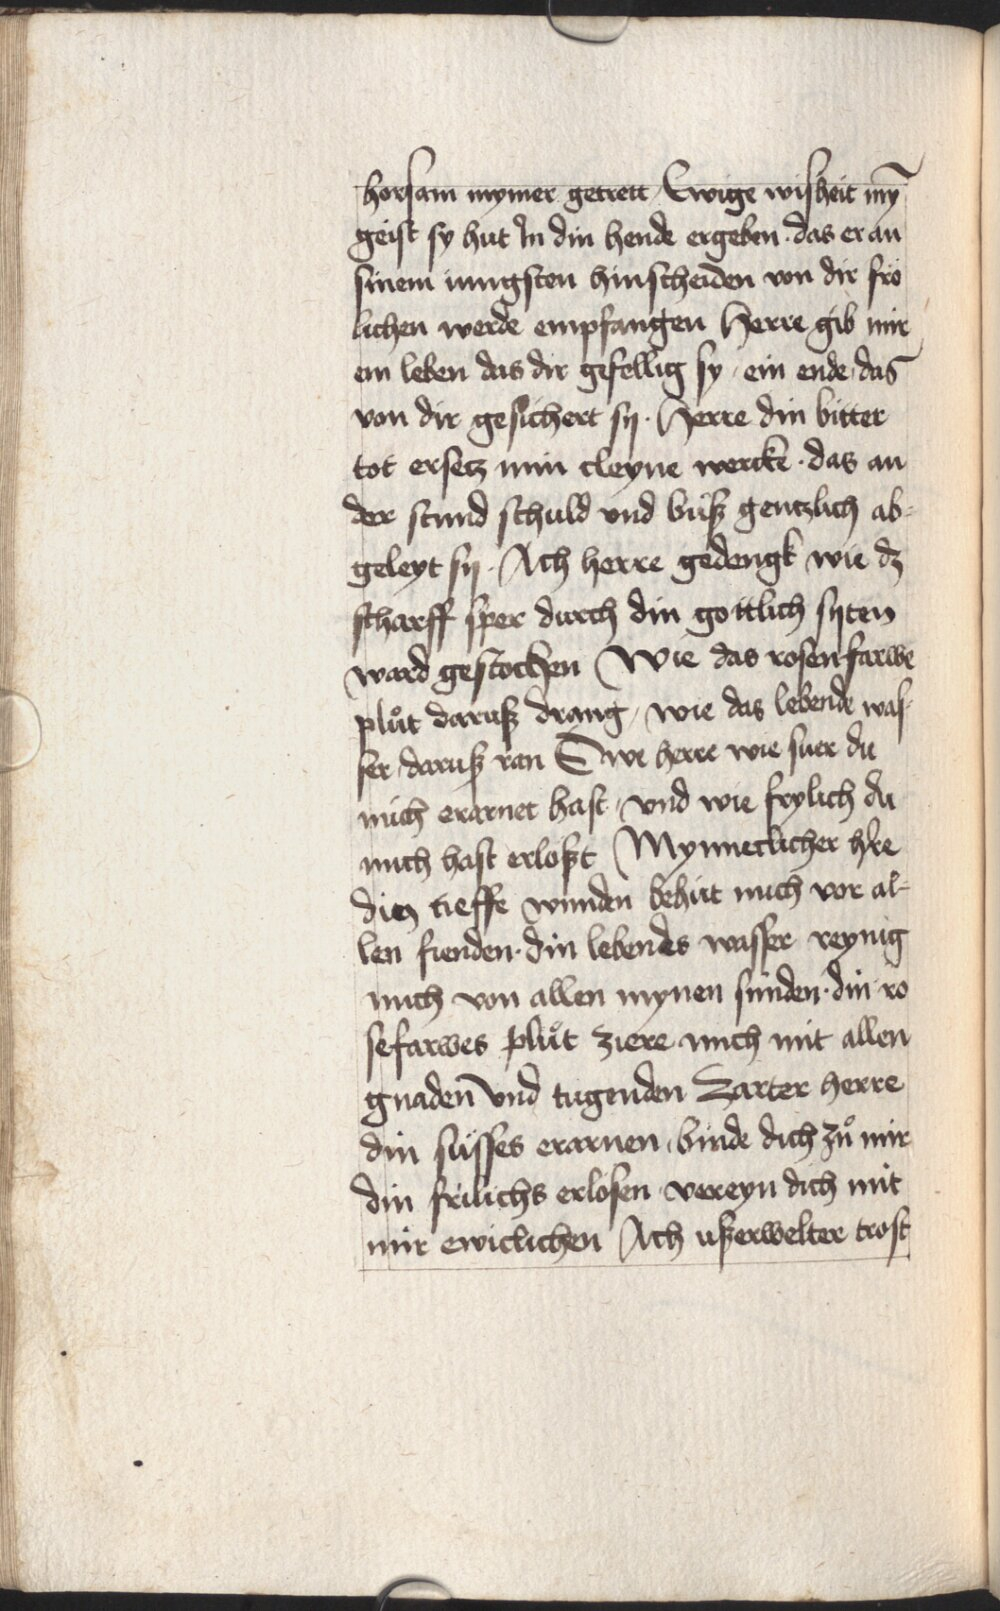 horsam nymer getrett Ewige wisheit my̅
geist sy hut In din hende ergeben · das er an
sinem iungsten hinscheiden von dir frö
lichen werde empfangen Herre gib mir
ein leben das dir gefellig sy / ein ende das
von dir gesichert sy · Herre din bitter
tot ersetz min cleyne wercke · das an
der stund schuld vnd buͤß gentzlich ab-
geleyt sy · Ach herre gedengk wie dz
scharff sper durch din gottlich syten
ward gestochen Wie das rosenfarwe
pluͦt daruß drang / wie das lebende was-
ser daruß ran Owe herre wie suer du
mich erarnet hast / vnd wie frylich du
mich hast erloßt Mynneclicher h're
din tieffe wunden behüt mich vor al-
len fienden · din lebendes wasser reynig
mich von allen mynen sünden · din ro
sefarwes pluͦt ziere mich mit allen
gnaden vnd tugenden Zarter herre
din süsses erarnen / binde dich zuͦ mir
din frilichs erlosen vereyn dich mit
mir ewiclichen Ach ußerwelter trost